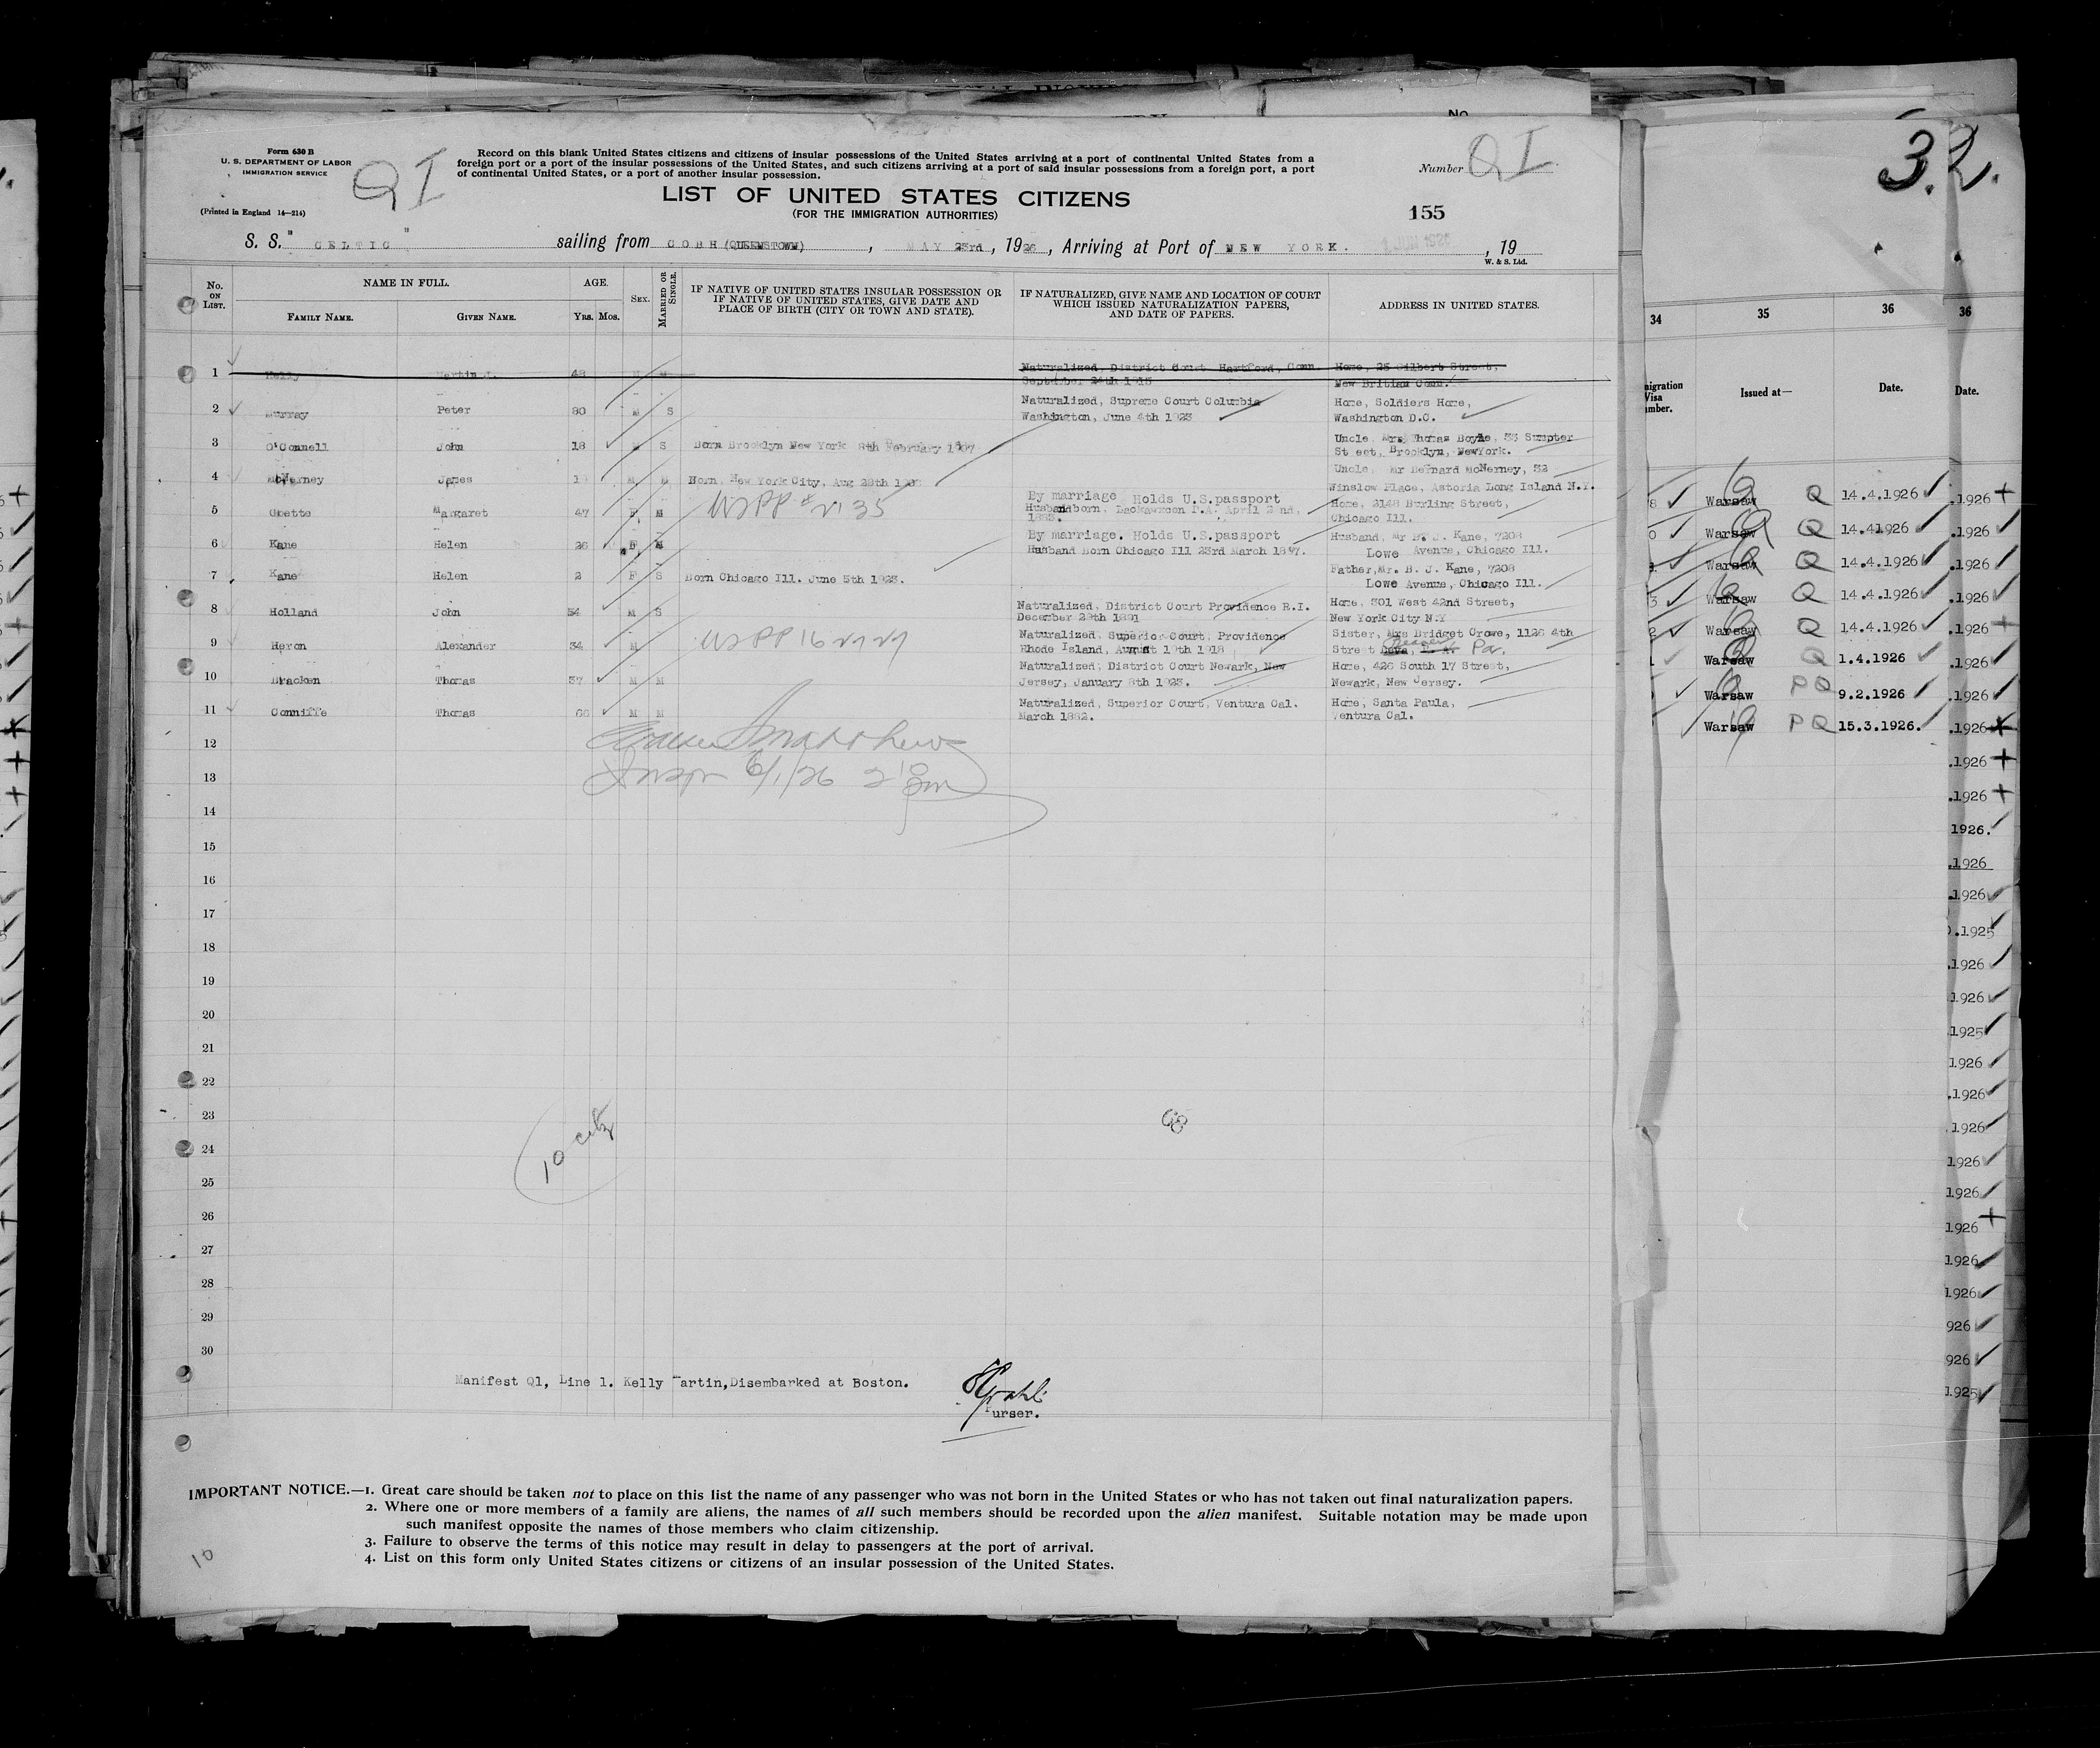 Form 630 B
U. S. DEPARTMENT OF LABOR
IMMIGRATION SERVICE
(Printed in England 14—214)
QI
Record on this blank United States citizens and citizens of insular possessions of the United States arriving at a port of continental United States from a
foreign port or a port of the insular possessions of the United States, and such citizens arriving at a port of said insular possessions from a foreign port, a port
of continental United States, or a port of another insular possession.
Number QI
LIST OF UNITED STATES CITIZENS
(FOR THE IMMIGRATION AUTHORITIES)
155
S. S. "CELTIC" sailing from COBH (QUEENSTOWN), MAY 23rd, 1926, Arriving at Port of NEW YORK. 1 JUN 1926, 19
W. & S. Ltd.
No. ON LIST. NAME IN FULL. FAMILY NAME. GIVEN NAME. AGE. YRS. MOS. SEX. MARRIED OR SINGLE.
IF NATIVE OF UNITED STATES INSULAR POSSESSION OR
IF NATIVE OF UNITED STATES, GIVE DATE AND
PLACE OF BIRTH (CITY OR TOWN AND STATE).
IF NATURALIZED, GIVE NAME AND LOCATION OF COURT
WHICH ISSUED NATURALIZATION PAPERS,
AND DATE OF PAPERS.
ADDRESS IN UNITED STATES.
1 Kelly Martin J. 48 M M Naturalized, District Court Hartford, Conn. Home, 25 Gilbert Street,
September 24th 1915 New Britian Conn.
2 Murray Peter 80 M S Naturalized, Supreme Court Columbia Home, Soldiers Home,
Washington, June 4th 1923 Washington D.C.
3 O'Connell John 18 M S Born Brooklyn New York 8th February Uncle, Mrs Thomas Boyle, 33 Sumpter
St eet, Brooklyn, NewYork.
4 McNerney James M M Born, New York City, Aug 28th Uncle, Mr Bernard McNerney, 32
Winslow Place, Astoria Long Island N.Y.
5 Goette Margaret 47 F M By marriage Holds U.S.passport Home, 2148 Burling Street,
Husbandborn, P.A. April 2 nd, Chicago Ill.
6 Kane Helen 26 F M By marriage. Holds U.S.passport Husband, Mr B. J. Kane, 7208
Husband Born Chicago Ill 23rd March 1897. Lowe Avenue, Chicago Ill.
7 Kane Helen 2 F S Born Chicago Ill. June 5th 1923. Father,Mr. B. J. Kane, 7208
Lowe Avenue, Chicago Ill.
8 Holland John 54 M S Naturalized, District Court Providence R.I. Home, 301 West 42nd Street,
December 29th 1891 New York City N.Y
9 Heron Alexander 34 M Naturalized, Superior Court, Providence Sister, Mrs Bridget Crowe, 1126 4th
Rhode Island, August 19th 1918 Street Beaver Pa.
10 Bracken Thomas 37 M M Naturalized, District Court Newark, New Home, 426 South 17 Street,
Jersey, January 8th 1923. Newark, New Jersey.
11 Conniffe Thomas 66 M M Naturalized, Superior Court, Ventura Cal. Home, Santa Paula,
March 1882. Ventura Cal.
12
Inspr 6/1/26 2 10 pm
13
14
15
16
17
18
19
20
21
22
23
10 citz
68
24
25
26
27
28
29
30
Manifest Q1, Line 1. Kelly artin,Disembarked at Boston.
Purser.
IMPORTANT NOTICE.—1. Great care should be taken not to place on this list the name of any passenger who was not born in the United States or who has not taken out final naturalization papers.
2. Where one or more members of a family are aliens, the names of all such members should be recorded upon the alien manifest. Suitable notation may be made upon
such manifest opposite the names of those members who claim citizenship.
3. Failure to observe the terms of this notice may result in delay to passengers at the port of arrival.
4. List on this form only United States citizens or citizens of an insular possession of the United States.
10
No.
3.
2.
34 35 36 36
Issued at— Date. Date.
Warsaw Q 14.4.1926 .1926
Warsaw Q 14.41926 .1926
Warsaw Q 14.4.1926 .1926
Warsaw Q 14.4.1926 .1926
Warsaw Q 14.4.1926 .1926
Warsaw Q 1.4.1926 .1926
Warsaw PQ 9.2.1926 .1926
Warsaw PQ 15.3.1926. .1926
.1926
.1926
1926.
.1926
.1926
.1925
.1926
1926
1925
1926
.1926
.1926
1926
1926
1926
1926
1926
926
926
1925